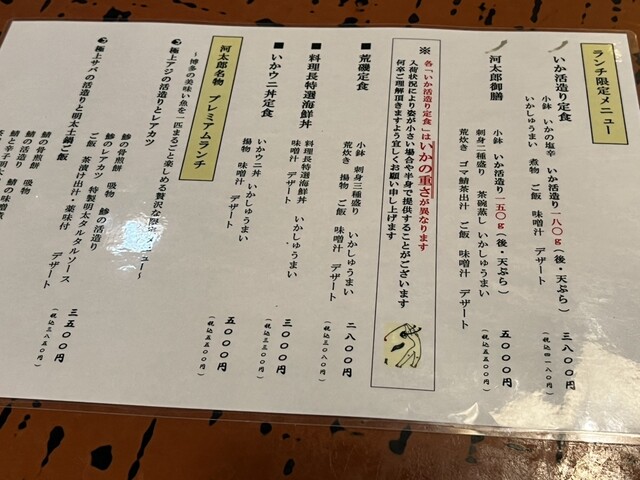 ランチ限定メニュー
いか活造り定食
小鉢 いかの塩辛 いか活造り一八〇g(後・天ぷら)
いかしゅうまい 煮物 ご飯 味噌汁 デザート
三八〇〇円
(税込四一八〇円)
河太郎御膳
小鉢 いか活造り一五〇g(後・天ぷら)
刺身二種盛り 茶碗蒸し いかしゅうまい
荒炊き ゴマ鯖茶出汁 ご飯 味噌汁 デザート
五〇〇〇円
(税込五五〇〇円)
※
各「いか活造り定食」はいかの重さが異なります
入荷状況により姿が小さい場合や半身で提供することがございます
何卒ご理解頂きますよう宜しくお願い申し上げます
■ 荒磯定食
小鉢 刺身三種盛り いかしゅうまい
荒炊き 揚物 ご飯 味噌汁 デザート
二八〇〇円
(税込三〇八〇円)
■ 料理長特選海鮮丼
料理長特選海鮮丼 いかしゅうまい
味噌汁 デザート
三〇〇〇円
(税込三三〇〇円)
■ いかウニ丼定食
いかウニ丼 いかしゅうまい
揚物 味噌汁 デザート
五〇〇〇円
(税込五五〇〇円)
河太郎名物 プレミアムランチ
~博多の美味い魚を一匹まるごと楽しめる贅沢な限定メニュー~
極上アジの活造りとレアカツ
鯵の骨煎餅 吸物 鯵の活造り
鯵のレアカツ 特製明太タルタルソース
ご飯 茶漬け出汁・薬味付 デザート
三五〇〇円
(税込三八五〇円)
極上サバの活造りと明太土鍋ご飯
鯖の骨煎餅 吸物
鯖の活造り
鯖と辛子明太